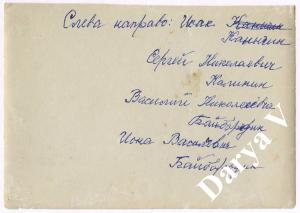 Слева направо: Исак ~~Каншин~~
Каншин
Сергей Николаевич
Калинин
Василий Николаевич
Байбородин
Иона Васильевич
Байбородин
Darya V